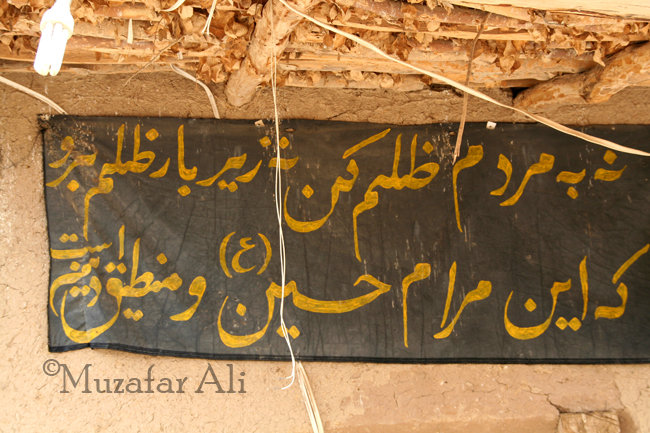 نه به مردم ظلم کن نه زیر بار ظلم برو
که این مرام حسین (ع) و منطق دین است
©Muzafar Ali